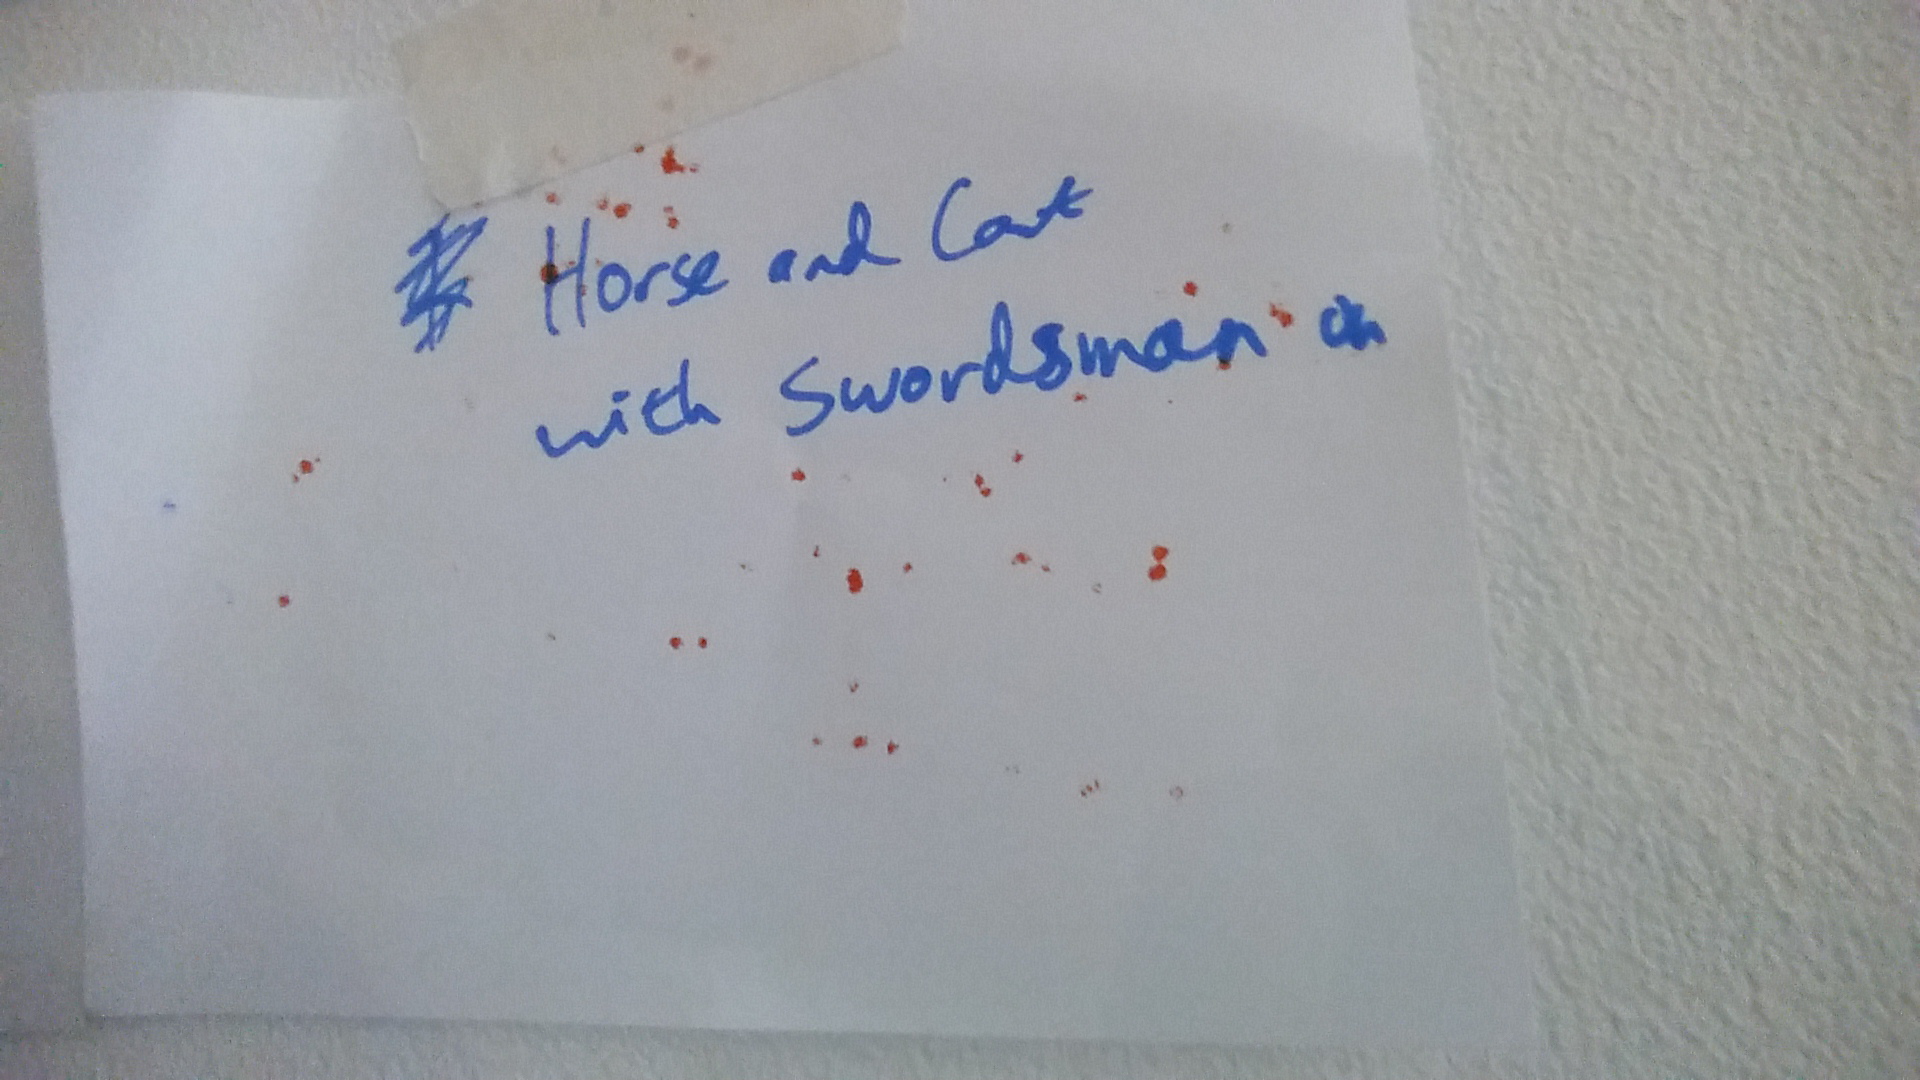 * Horse and Cart
with Swordsman on